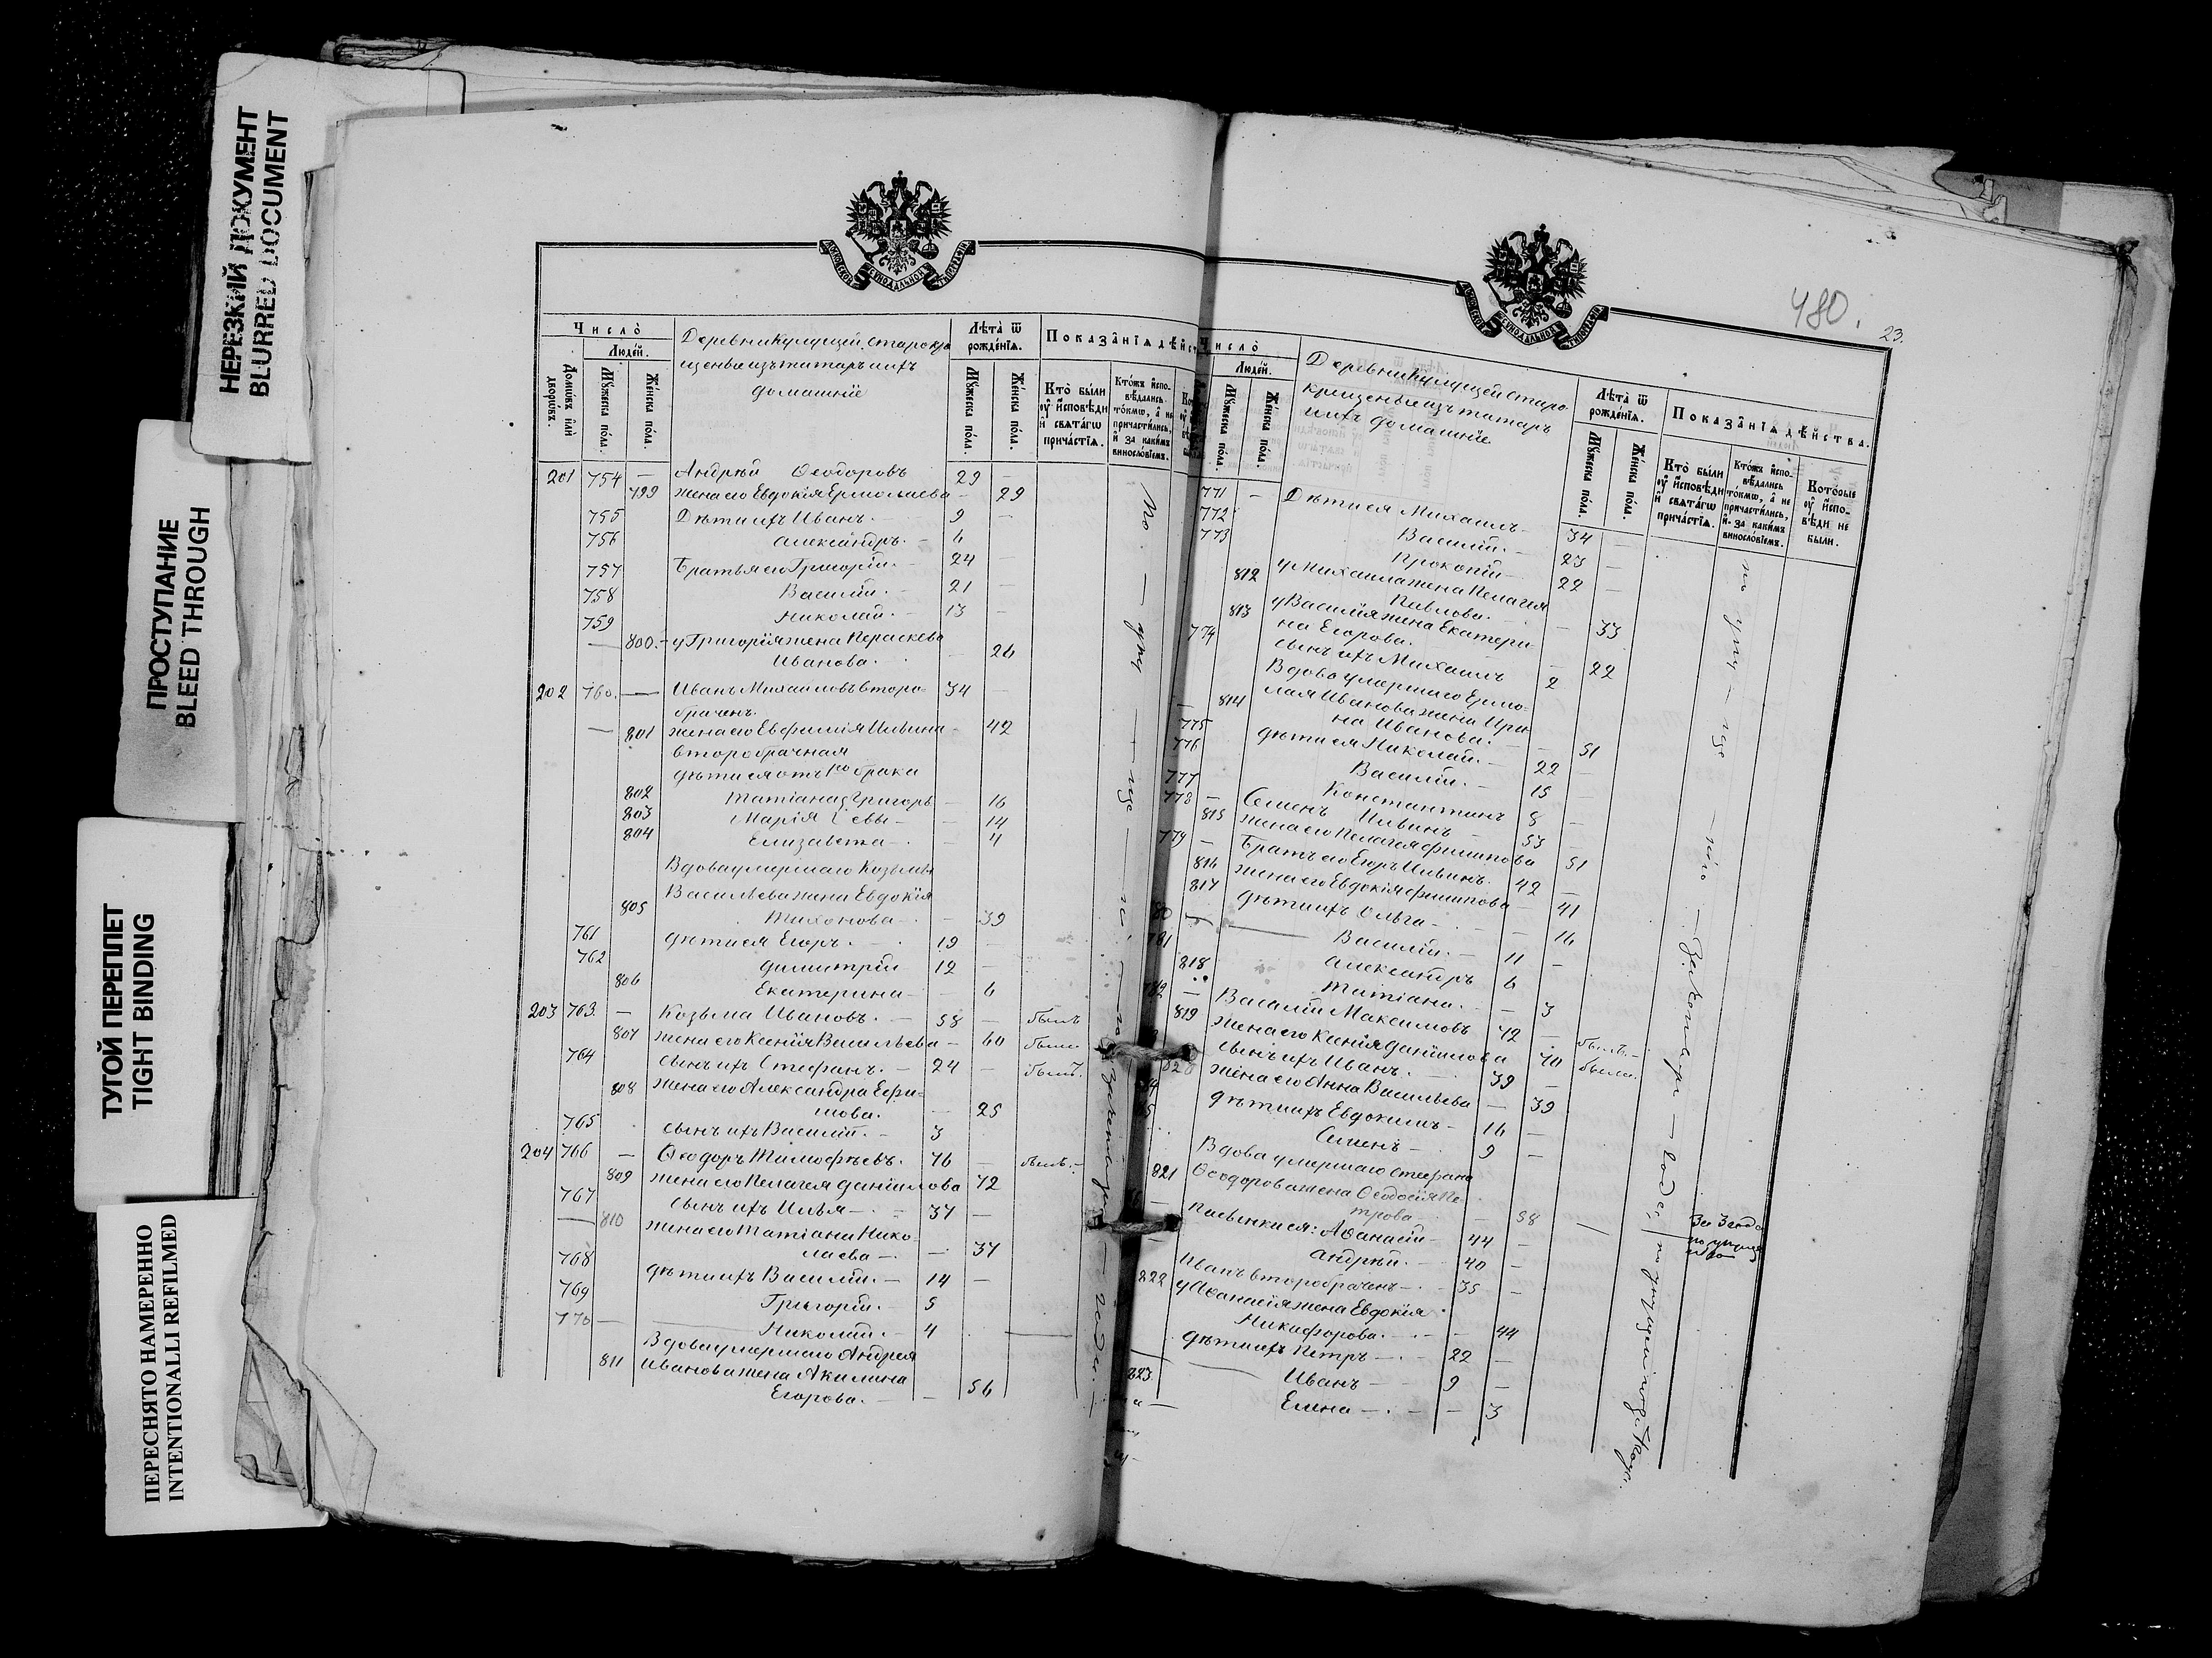 НЕРЕЗКИЙ ДОКУМЕНТ
BLURRED DOCUMENT
ПРОСТУПАНИЕ
BLEED THROUGH
ТУГОЙ ПЕРЕПЛЕТ
TIGHT BINDING
ПЕРЕСНЯТО НАМЕРЕННО
INTENTIONALLI REFILMED
Число̀
Людей.
Домѡвъ или дворѡвъ.
Мꙋжеска пола.
Женска пола.
Деревни старокре
щеные изъ татаръ и ихъ
домашніе
Лѣта ѿ рожденїѧ.
Мꙋжеска пола.
Женска пола.
Показанїѧ дѣйст
Кто были оу исповѣди и свѧтагѡ причастїѧ.
Ктожъ исповѣдались токмѡ, а не причастились, и за какимъ винословїемъ.
201 754 — Андрей Ѳеодоровъ 29 —
799 жена его Евдокія Ермолаева — 29
755 Дѣти ихъ Иванъ. — 9 —
756 Александръ. — 6
757 Братья его Григорій. — 24 —
758 Василій. — 21 —
759 Николай. — 13 —
— 800. — у Григорія жена Параскева
Иванова. — 26
202 760. — Иванъ Михаиловъ второ- 34
браченъ.
— 801 жена его Евфимія Ильина — 42
второбрачная
дѣти ея отъ 1го брака
802 Татіана Григорь — 16
803 Марія евы — — 14
804 Елизавета — — 4
Вдова умершаго Козьмы
Васильева жена Евдокія
805 Тихонова — 39
761 дѣти ея Егоръ. — 19 —
762 Димитрій 12 —
806 Екатерина — — 6
203 763 — Козьма Ивановъ. — 58 — былъ
807 жена его Ксенія Васильева — 60 была
764 сынъ ихъ Стефанъ. — 24 — былъ.
808 жена его Александра Ефи-
мова. — 25
765 сынъ ихъ Василій. — 3
204 766 — Ѳеодоръ Тимофѣевъ. 76 — былъ. —
809 жена его Пелагея Даніилова 72
767 сынъ ихъ Илья — 37 —
— 810 жена его Татіана Нико-
лаева — — 37
768 дѣти ихъ Василій. — 14 —
769 Григорій. — 5
770 — Николай. — 4
Вдова умершаго Андрея
811 Иванова жена Акилина
Егорова. — — 56
480.
23.
Число̀
Людей.
Мꙋжеска пола.
Женска пола.
Деревни старо-
крещеные изъ татаръ
и ихъ домашніе
Лѣта ѿ рожденїѧ.
Мꙋжеска пола.
Женска пола.
Показанїѧ дѣйства.
Кто были оу исповѣди и свѧтагѡ причастїѧ.
Ктожъ исповѣдались токмѡ, а не причастились, и за какимъ винословїемъ.
Которые оу исповѣди не были.
771 — Дѣти ея Михаилъ — 34 —
772 Василій. — 23 —
773 Прокопій — 22 —
812 у Михаила жена Пелагея
Павлова. — 33
813 у Василія жена Екатери-
на Егорова. — 22
774 сынъ ихъ Михаилъ 2
Вдова умершаго Ермо-
814 лая Иванова жена Ири-
на Иванова. — — 51
775 дѣти ея Николай. — 22 —
776 Василій. — 15 —
777 Константинъ 8 —
778 — Семенъ Ильинъ — 53 —
815 жена его Пелагея Филипова 51
779 — Братъ его Егоръ Ильинъ. 42 —
816 жена его Евдокія Филипова — 41
817 дѣти ихъ Ольга — — 16
Василій. — 11 —
781 Александръ 6
818 Татіана. — — 3
782 — Василій Максимовъ 72 — былъ. —
819 жена его Ксенія Даніилова 70 была.
сынъ ихъ Иванъ. — 39 —
820 жена его Анна Васильева — 39
дѣти ихъ Евдокимъ — 16 —
Семенъ — 9 —
Вдова умершаго Стефана
821 Ѳеодорова жена Ѳеодосія Пе-
трова — — 58
пасынки ея: Аѳанасій — 44 —
Андрей. — 40 —
Иванъ второбраченъ — 35 —
822 у Аѳанасія жена Евдокія
Никифорова. — — 44
дѣти ихъ Петръ — 22 —
Иванъ — 9 —
823 Елена — — 3